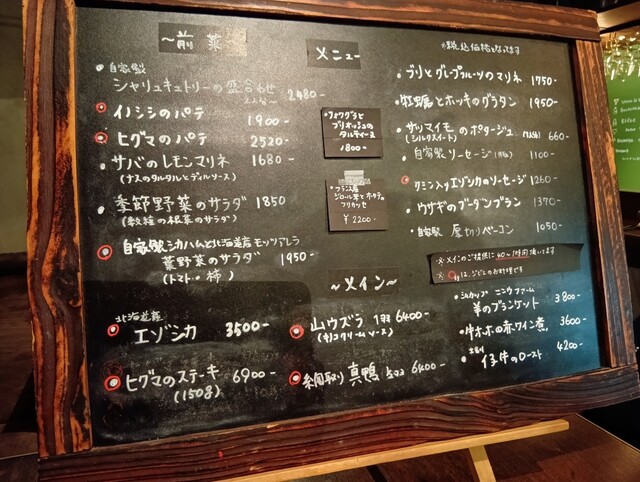 ～前菜～
メニュー
※税込価格となってます
・自家製
シャリュキュトリーの盛合わせ 2480-
イノシシのパテ 1900-
ヒグマのパテ 2520-
・サバのレモンマリネ 1680-
(ナスのタルタルとディルソース)
・季節野菜のサラダ 1850
(数種の根菜のサラダ)
自家製シカハムと北海道産モッツアレラ
葉野菜のサラダ 1950-
(トマト・柿)
・フォワグラと
ブリオッシュの
タルティーヌ
1800-
・フランス産
ジロール茸とホタテの
フリカッセ
¥2200-
・ブリとグレープフルーツのマリネ 1750-
・牡蠣とホッキのグラタン 1950-
・サツマイモのポタージュ 660-
(シルクスイート)
・自家製ソーセージ 1100-
クミン入りエゾシカのソーセージ 1260-
・ウサギのブーダンブラン 1370-
・自家製 厚切りベーコン 1050-
※メインのご提供に40～1時間頂いてます
※○印は、ジビエのお料理です
～メイン～
北海道産
エゾシカ 3500-
ヒグマのステーキ 6900-
(150g)
山ウズラ 1羽 6400-
網取り真鴨 6400-
・シルカップ ニニウファーム
羊のブランケット 3800-
・牛ホホの赤ワイン煮 3600-
・仔牛のロースト 4200-